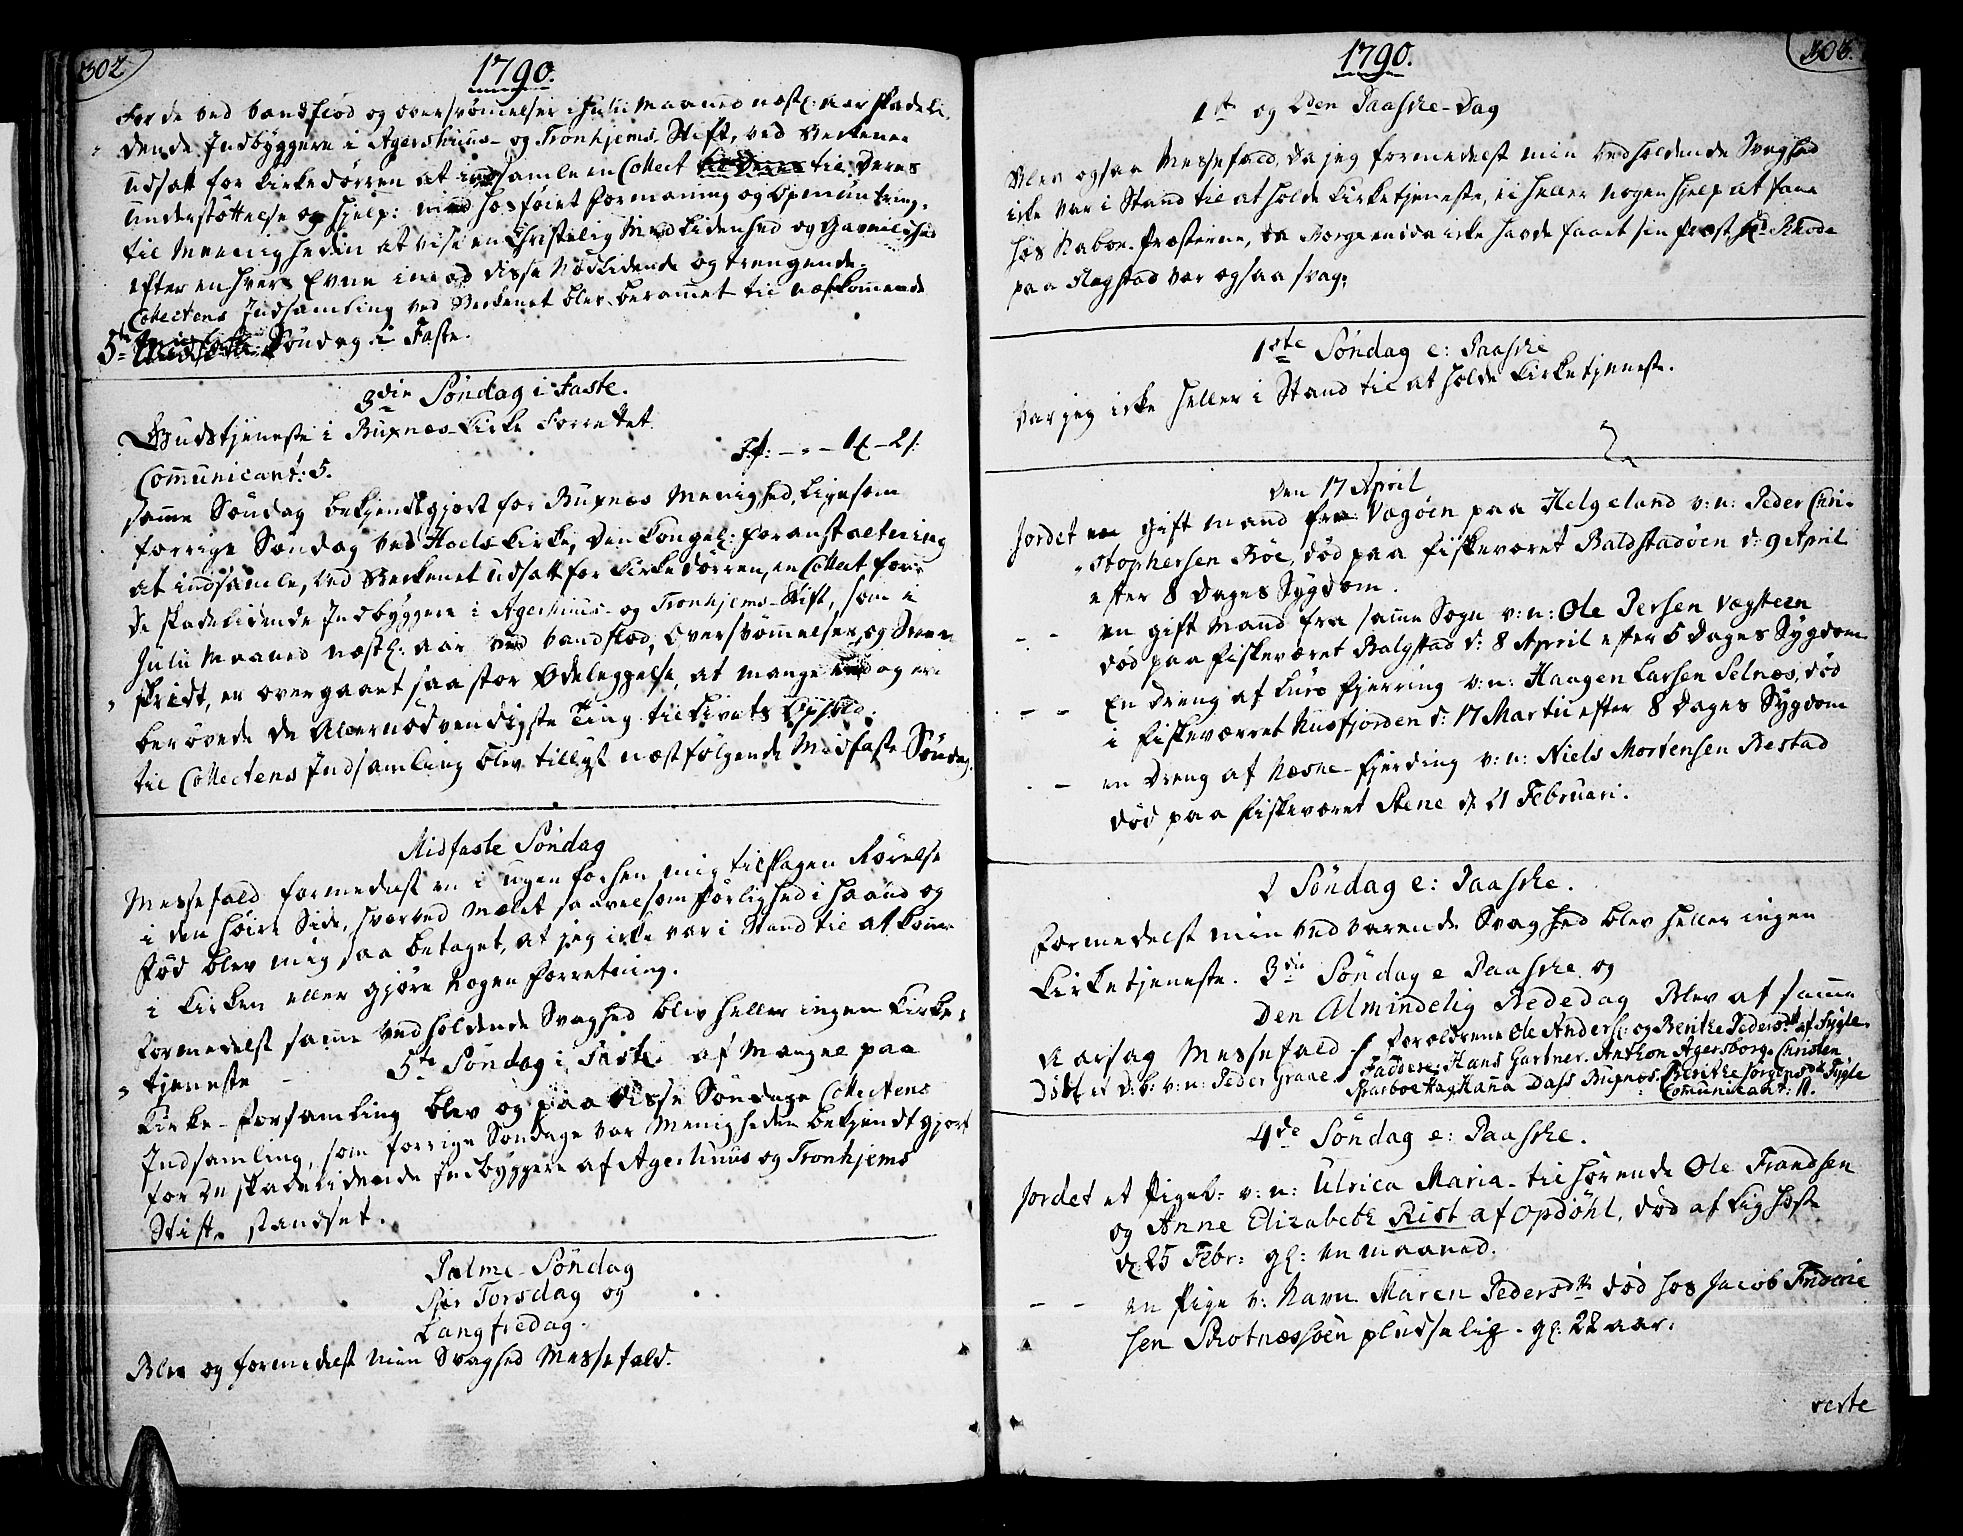 302
1790.
For de ved Vandflod og oversvömmelser i Julii Maaned næstl: aar skadeli-
dende Indbyggere i Agershuus- og Tronhjems Stift, ved Beckenet
udsatt for Kirkedörren at indsamle en Collect til Deres
Understöttelse og hjelp: med hosföiet formaning og Opmuntring
til Meenigheden at vise en Christelig Medlidenhed og Gavmildhed
efter enhvers Evne imod disse Nødlidende og trengende.
Collectens Indsamling ved Beckenet blev berammet til næstkommende
5te Söndag i Faste.
3die Söndag i Faste.
Gudstjeneste i Buxnæs Kirke Forrettet
Communicant: 5.
samme Söndag bekjendtgjort for Buxnæs Menighed, ligesom
forrige Söndag ved Hoels Kirke, den Kongel: Foranstaltning
at indsamle, ved Beckenet udsatt for Kirkedörren, en Collect for
de skadelidende Indbyggere i Agerhuus- og Tronhjems-Stift, som i
Julii Maaned næstl: aar ved Vandflod, Oversvömmelser, og
skridt, er overgaaet saa stor Ödeleggelse, at mange og er
berövede de Allernödvendigste Ting til Livets Ophold.
til Collectens Indsamling blev tillyst næstfölgende Midfaste Söndag.
Midfaste Söndag
Messefald formedelst en i ugen forhen mig tilslagen Rörelse
i den höire Side, hvorved Mælet saavelsom förlighed i Haand og
Fod blev mig saa betaget, at jeg ikke var i Stand til at komme
i Kirken eller gjöre nogen Forretning.
Formedelst samme vedholdende Svaghed blev heller ingen Kirke-
tjeneste 5te Söndag i Faste. af Mangel paa
Kirke-forsamling blev og paa disse Söndage Collectens
Indsamling, som forrige Söndage var Menigheden bekjendtgjort
for de skadelidende Indbyggere af Agerhuus og Tronhjems
Stift, standset.
Palme-Söndag
Skjer Torsdag og
Langfredag.
Blev og formedelst min Svaghed Messefald.
303.
1790.
1ste og 2den Paaske-Dag
Blev ogsaa Messefald, da jeg formedelst min vedholdende Svaghed
ikke var i Stand til at holde Kirketjeneste, ei heller nogen hjelp at faae
hos Naboe-Præsterne, da Borge endda ikke havde faaet sin Præst, Hr. Rhode
paa Flagstad var ogsaa svag.
1ste Söndag e: Paaske
var jeg ikke heller i Stand til at holde Kirketjeneste.
den 17 April
Jordet en gift mand fra Vegöen paa Helgeland v: n: Peder Chri-
stophersen Böe, död paa fiskeværet Baldstadöen d: 9 April
efter 8 dages Sygdom.
- - en gift Mand fra samme Sogn v: n: Ole Persen Vegsteen
död paa fiskeværet Balgstad d: 8 April efter 5 dages Sygdom
- - En dreng af Buxe fjerring v: n: Haagen Larsen Selnæs, död
i Fiskeværret Nusfjorden d: 17 Martii efter 8 dages Sygdom
- - en dreng af Næsne-fjerding v: n: Niels Mortensen Restad
död paa fiskeværet Stene d. 21 Februari.
2 Söndag e: Paaske.
Formedelst min vedvarende Svaghed blev heller ingen
Kirketjeneste. 3die Söndag e Paaske og
den Almindelig Bededag Blev af samme
Aarsag Messefald. Foreldrene Ole Anders: og Beritte Pedersdtr af Fygle.
Döbt et D. b: v: n: Peder Graae. Faddere: Hans Gartner. Anthon Agersborg. Christen
Hanna Dass Buxnæs. Beritte Jörgensdr Fygle
Communicant: 11.
4de Söndag e: Paaske.
Jordet et Pigeb: v: n: Ulrica Maria. tilhörende Ole Frandsen
og Anne Elizabeth Rist af Opdöhl, död af Kighoste
d. 25 Febr: gl: en Maaned.
- - en Pige v: Navn Maren Pedersdtr död hos Jacob Frideric
sen Skotnæssöen pludselig. gl: 22 aar.